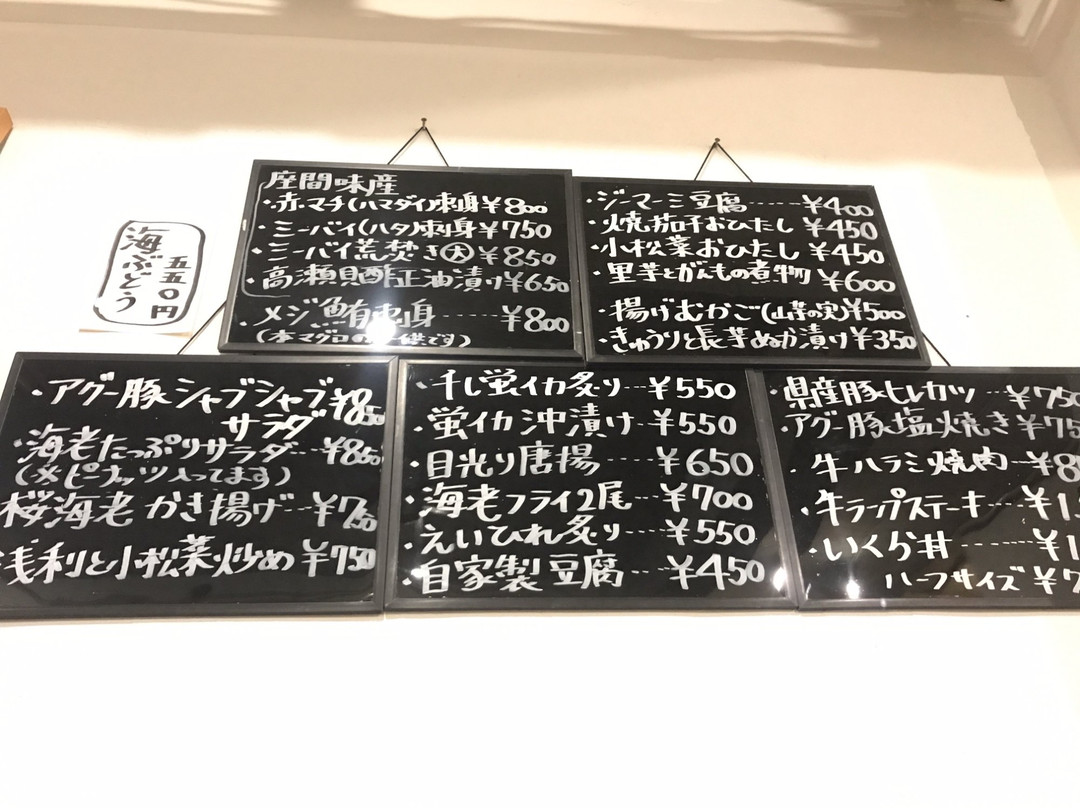 海ぶどう
五五〇円
座間味産
・赤マチ(ハマダイ)刺身 ¥800
・ミーバイ(ハタ)刺身 ¥750
・ミーバイ荒焚き大 ¥850
・高瀬貝酢正油漬け ¥650
・メジ鮪刺身……¥800
(本マグロの
です)
・ジーマーミ豆腐……¥400
・焼茄子おひたし ¥450
・小松菜おひたし ¥450
・里芋とがんもの煮物 ¥600
・揚げむかご(山芋の実)¥500
・きゅうりと長芋ぬか漬け ¥350
・アグー豚シャブシャブ
サラダ ¥850
・海老たっぷりサラダ…¥850
(※ピーナッツ入ってます)
桜海老かき揚げ…¥750
浅利と小松菜炒め ¥750
・干し蛍イカ炙り…¥550
・蛍イカ沖漬け…¥550
・目光り唐揚…¥650
・海老フライ2尾…¥700
・えいひれ炙り…¥550
・自家製豆腐…¥450
・県産豚ヒレカツ…¥750
・アグー豚塩焼き ¥75
・牛ハラミ焼肉…¥8
・牛ランプステーキ…¥1
・いくら丼……¥1
ハーフサイズ ¥7